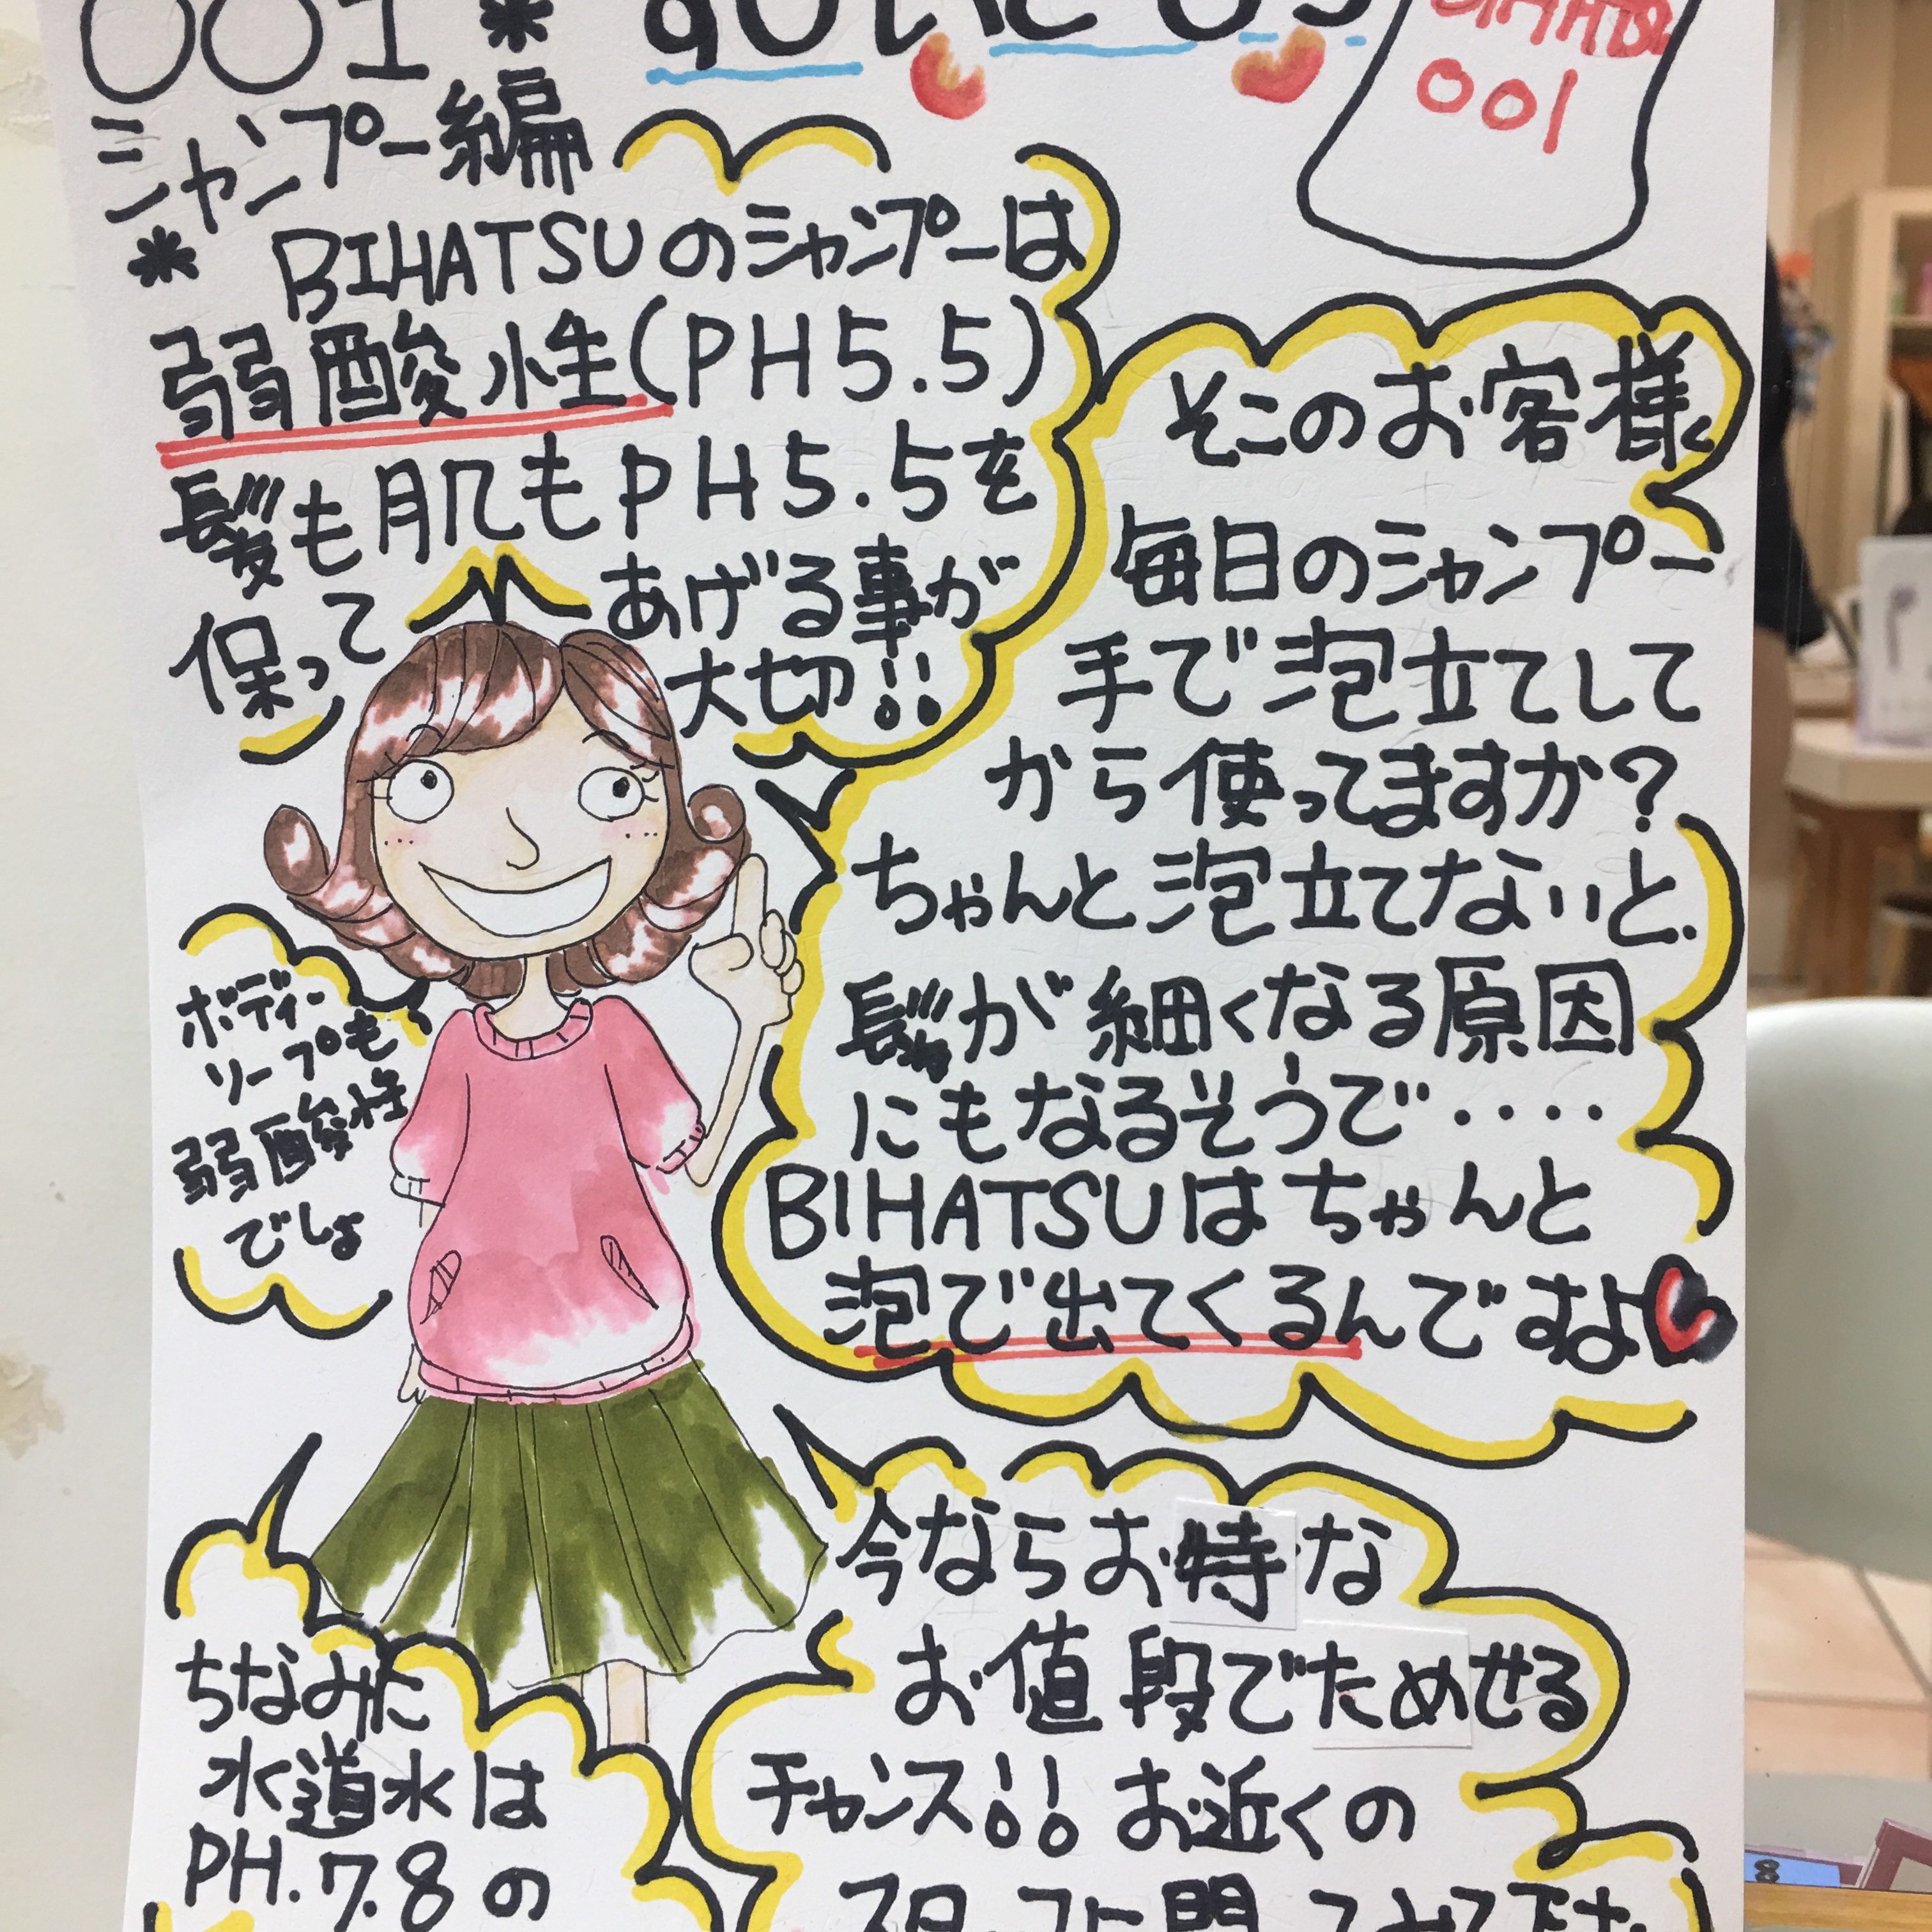 001 *
シャンプー編
001
* BIHATSUのシャンプーは
弱酸性(PH5.5)
髪も肌もPH5.5を
保って
あげる事が
大切!!
そこのお客様
毎日のシャンプー
手で泡立てして
から使ってますか?
ちゃんと泡立てないと.
髪が細くなる原因
にもなるそうで‥‥
BIHATSUはちゃんと
泡で出てくるんですよ
ボディー
ソープも
弱酸性
でしょ
今ならお特な
お値段でためせる
チャンス!!お近くの
ちなみに
水道水は
PH.7.8の